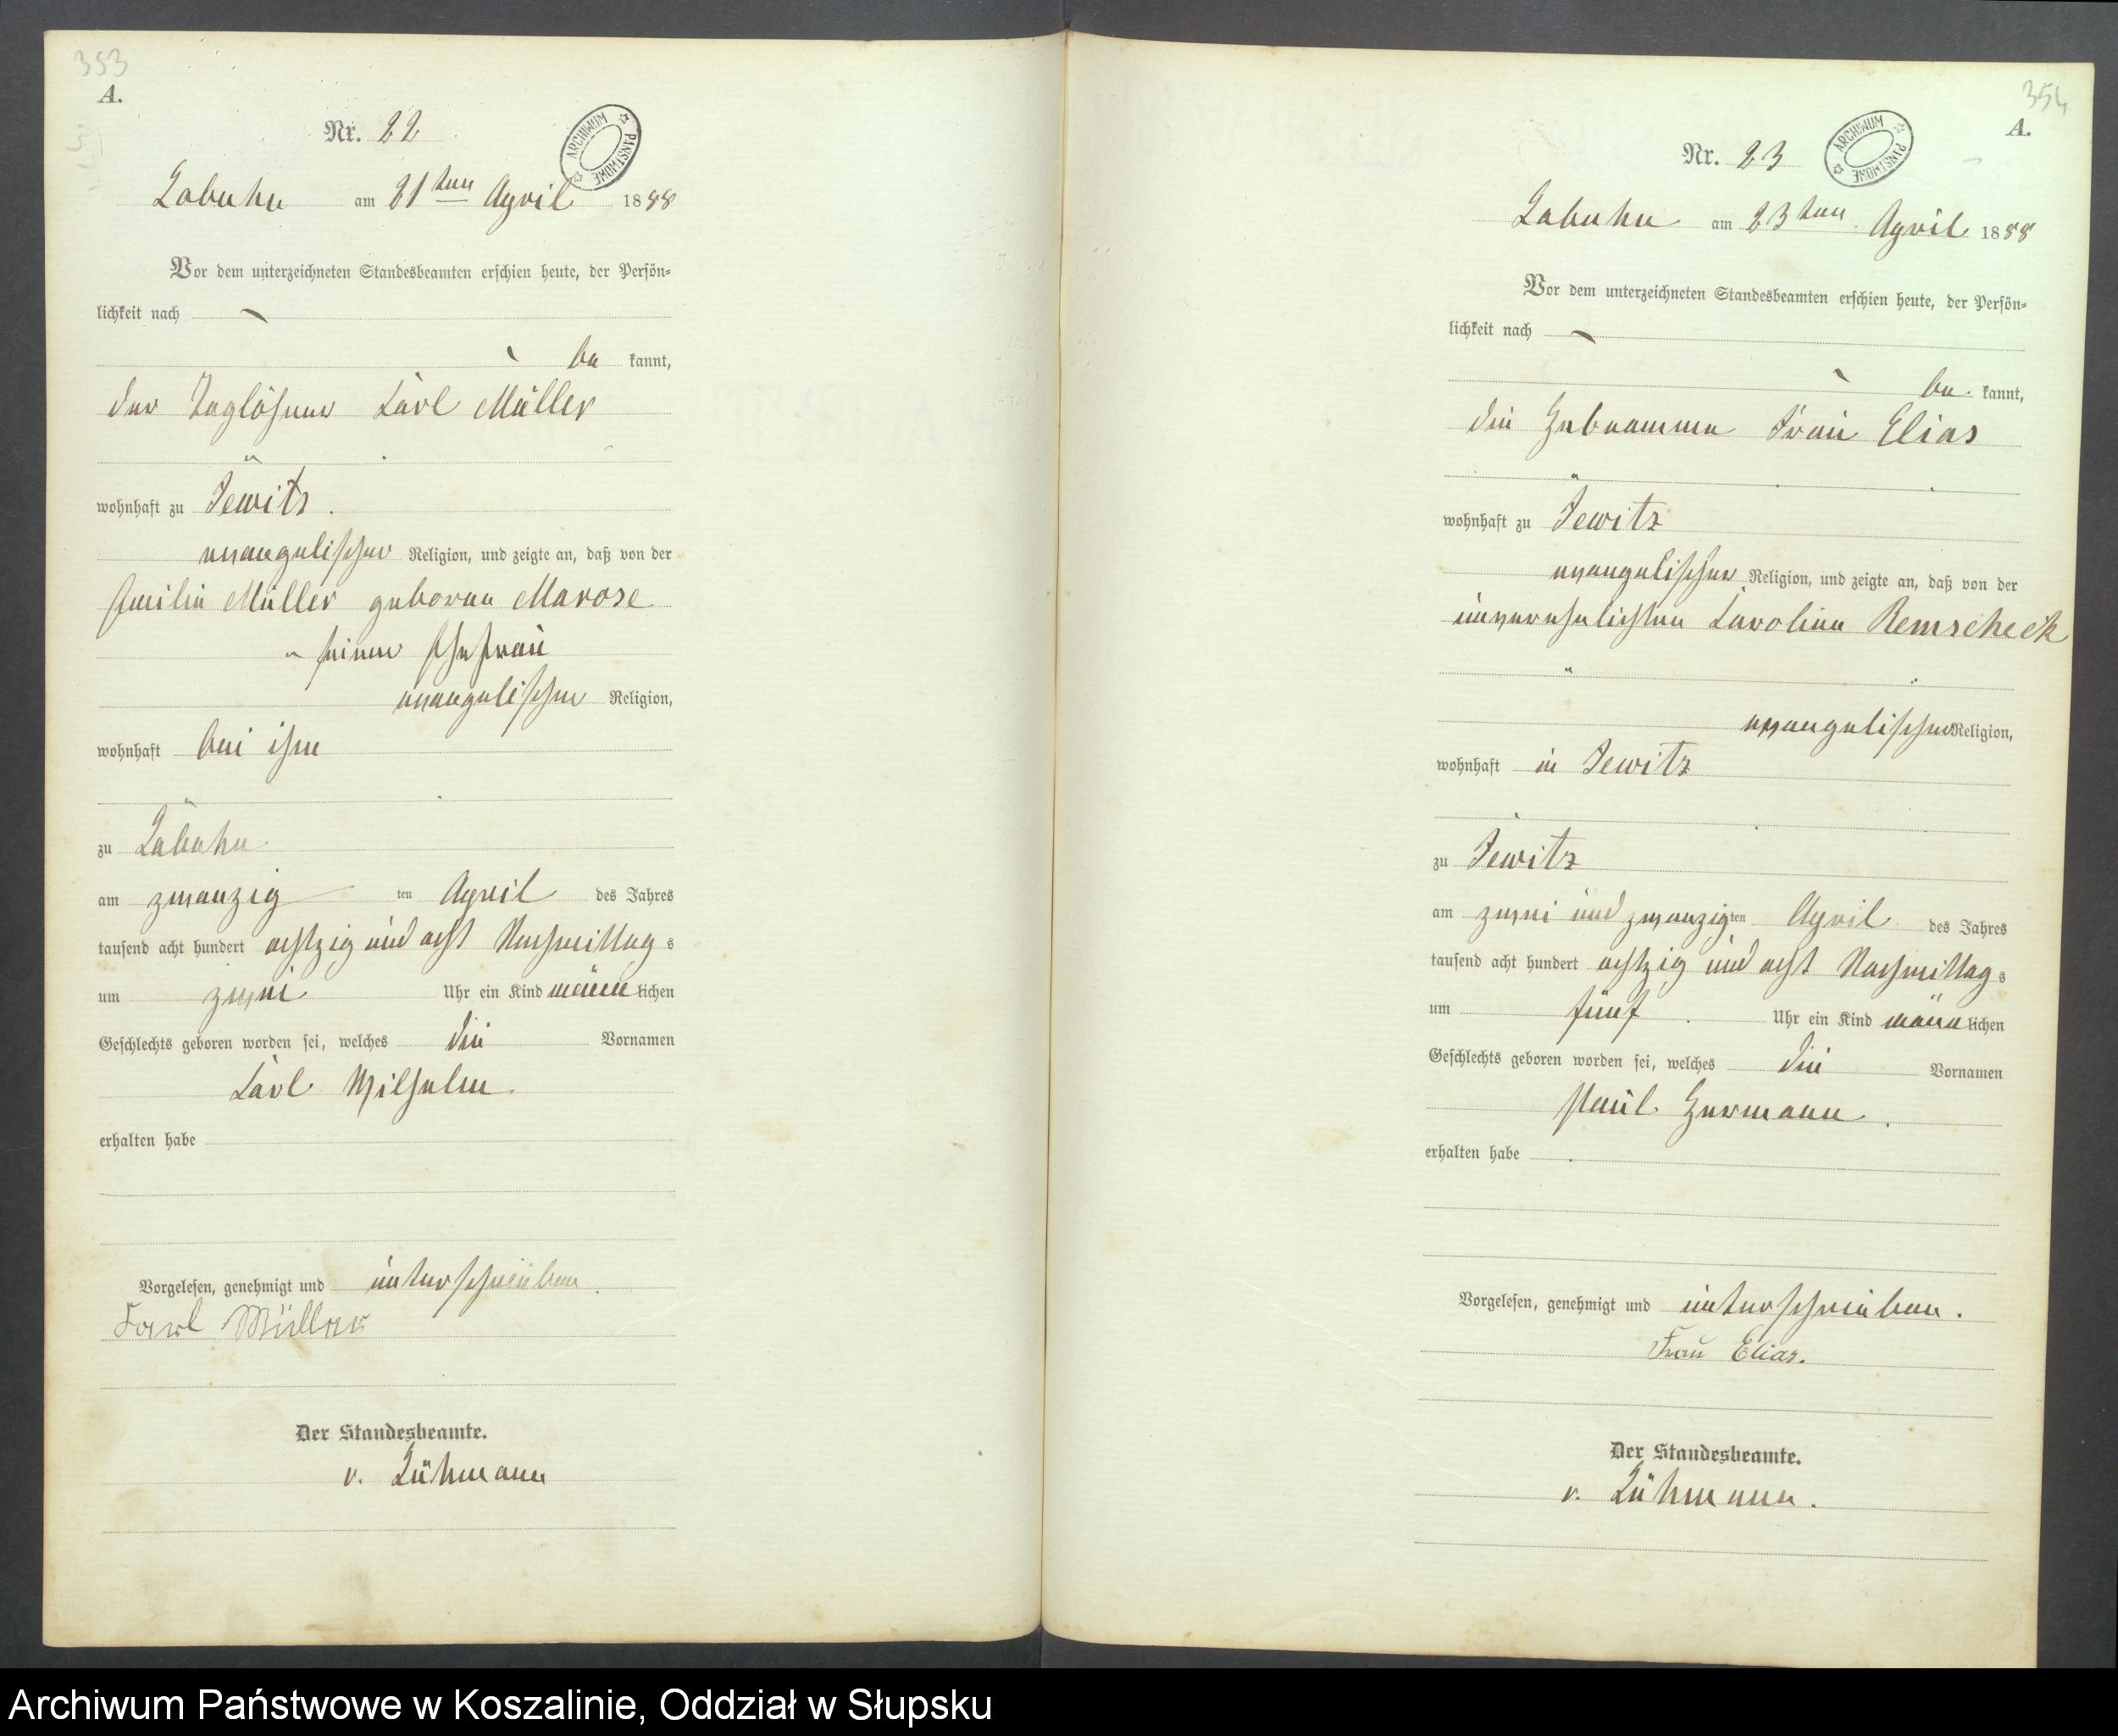 353
A.
Nr. 22
ARCHIWUM PAŃSTWOWE
Labuhn am 21ten April 1888
Vor dem unterzeichneten Standesbeamten erschien heute, der Persön=
lichkeit nach
be kannt,
der Taglöhner Carl Müller
wohnhaft zu Jewitz.
evangelischer Religion, und zeigte an, daß von der
Emilie Müller geborene Marose
seiner Ehefrau
evangelischer Religion,
wohnhaft bei ihm
zu Labuhn
am zwanzig ten April des Jahres
tausend acht hundert achtzig und acht Nachmittag s
um zwei Uhr ein Kind männ lichen
Geschlechts geboren worden sei, welches die Vornamen
Carl Wilhelm.
erhalten habe
Vorgelesen, genehmigt und unterschrieben.
Karl Müller
Der Standesbeamte.
v. Lühmann
354
A.
Nr. 23
ARCHIWUM PAŃSTWOWE
Labuhn am 23ten April 1888
Vor dem unterzeichneten Standesbeamten erschien heute, der Persön=
lichkeit nach
be kannt,
die Hebeamme Frau Elias
wohnhaft zu Jewitz
evangelischer Religion, und zeigte an, daß von der
unverehelichten Caroline Remscheck
evangelischer Religion,
wohnhaft in Jewitz
zu Jewitz
am zwei und zwanzig ten April des Jahres
tausend acht hundert achtzig und acht Nachmittag s
um fünf Uhr ein Kind männ lichen
Geschlechts geboren worden sei, welches die Vornamen
Paul Hermann.
erhalten habe
Vorgelesen, genehmigt und unterschrieben.
Frau Elias.
Der Standesbeamte.
v. Lühmann.
Archiwum Państwowe w Koszalinie, Oddział w Słupsku